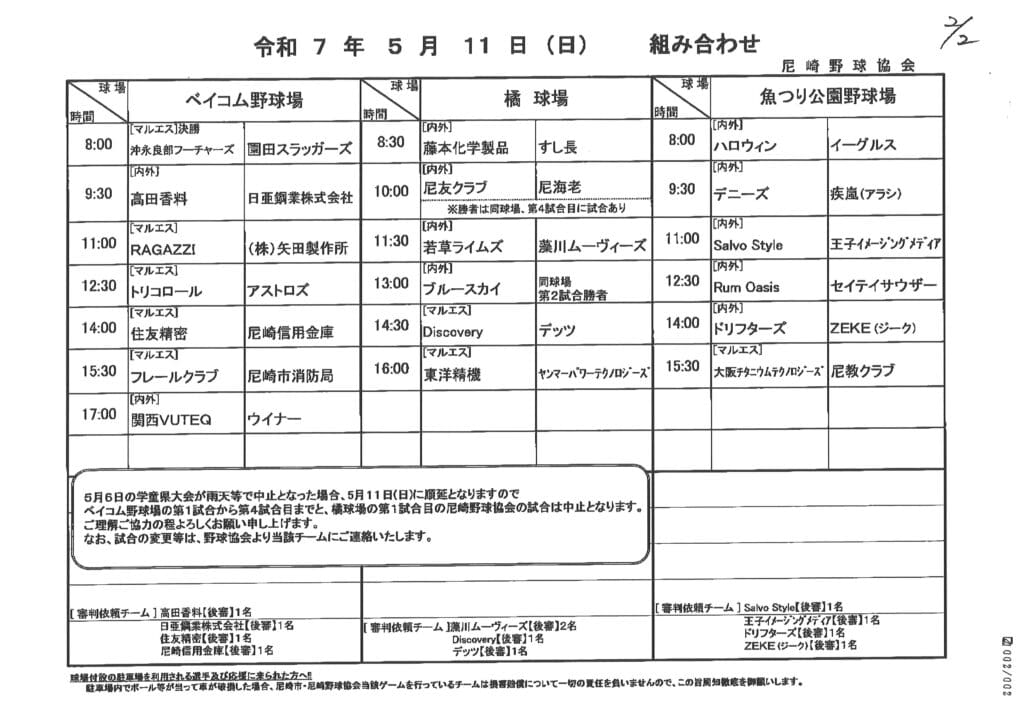 2/2
令和 7 年 5 月 11 日（日） 組み合わせ
尼崎野球協会
球場 時間 ベイコム野球場
8:00 [マルエス]決勝 沖永良郎フーチャーズ 園田スラッガーズ
9:30 [内外] 高田香料 日亜鋼業株式会社
11:00 [マルエス] RAGAZZI （株）矢田製作所
12:30 [マルエス] トリコロール アストロズ
14:00 [マルエス] 住友精密 尼崎信用金庫
15:30 [マルエス] フレールクラブ 尼崎市消防局
17:00 [内外] 関西VUTEQ ウイナー
球場 時間 橘 球場
8:30 [内外] 藤本化学製品 すし長
10:00 [内外] 尼友クラブ 尼海老
※勝者は同球場、第4試合目に試合あり
11:30 [内外] 若草ライムズ 藻川ムーヴィーズ
13:00 [内外] ブルースカイ 同球場 第2試合勝者
14:30 [マルエス] Discovery デッツ
16:00 [マルエス] 東洋精機 ヤンマーパワーテクノロジーズ
球場 時間 魚つり公園野球場
8:00 [内外] ハロウィン イーグルス
9:30 [内外] デニーズ 疾嵐(アラシ)
11:00 [内外] Salvo Style 王子イメージングメディア
12:30 [内外] Rum Oasis セイテイサウザー
14:00 [内外] ドリフターズ ZEKE（ジーク）
15:30 [マルエス] 大阪チタニウムテクノロジーズ 尼教クラブ
5月6日の学童県大会が雨天等で中止となった場合、5月11日(日)に順延となりますので
ベイコム野球場の第1試合から第4試合目までと、橘球場の第1試合目の尼崎野球協会の試合は中止となります。
ご理解ご協力の程よろしくお願い申し上げます。
なお、試合の変更等は、野球協会より当該チームにご連絡いたします。
[ 審判依頼チーム ] 高田香料【後審】1名
日亜鋼業株式会社【後審】1名
住友精密【後審】1名
尼崎信用金庫【後審】1名
[ 審判依頼チーム ] 藻川ムーヴィーズ【後審】2名
Discovery【後審】1名
デッツ【後審】1名
[ 審判依頼チーム ] Salvo Style【後審】1名
王子イメージングメディア【後審】1名
ドリフターズ【後審】1名
ZEKE（ジーク）【後審】1名
球場付設の駐車場を利用される選手及び応援に来られた方へ!!
駐車場内でボール等が当って車が破損した場合、尼崎市・尼崎野球協会当該ゲームを行っているチームは損害賠償について一切の責任を負いませんので、この旨周知徹底を御願いします。
002/002